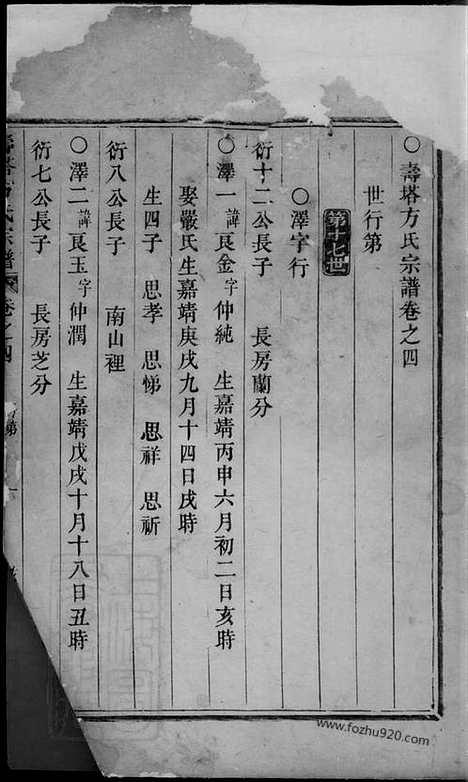 ○壽塔方氏宗譜卷之四
世行第
第十七世
○澤字行
衍十二公長子　長房蘭分
○澤一諱良金字仲純　生嘉靖丙申六月初二日亥時
娶嚴氏生嘉靖庚戌九月十四日戌時
生四子　思孝　思悌　思祥　思祈
衍八公長子　南山裡
○澤二諱良玉字仲潤　生嘉靖戊戌十月十八日丑時
衍七公長子　長房芝分
方氏宗譜　卷之四
www.fozhu920.com